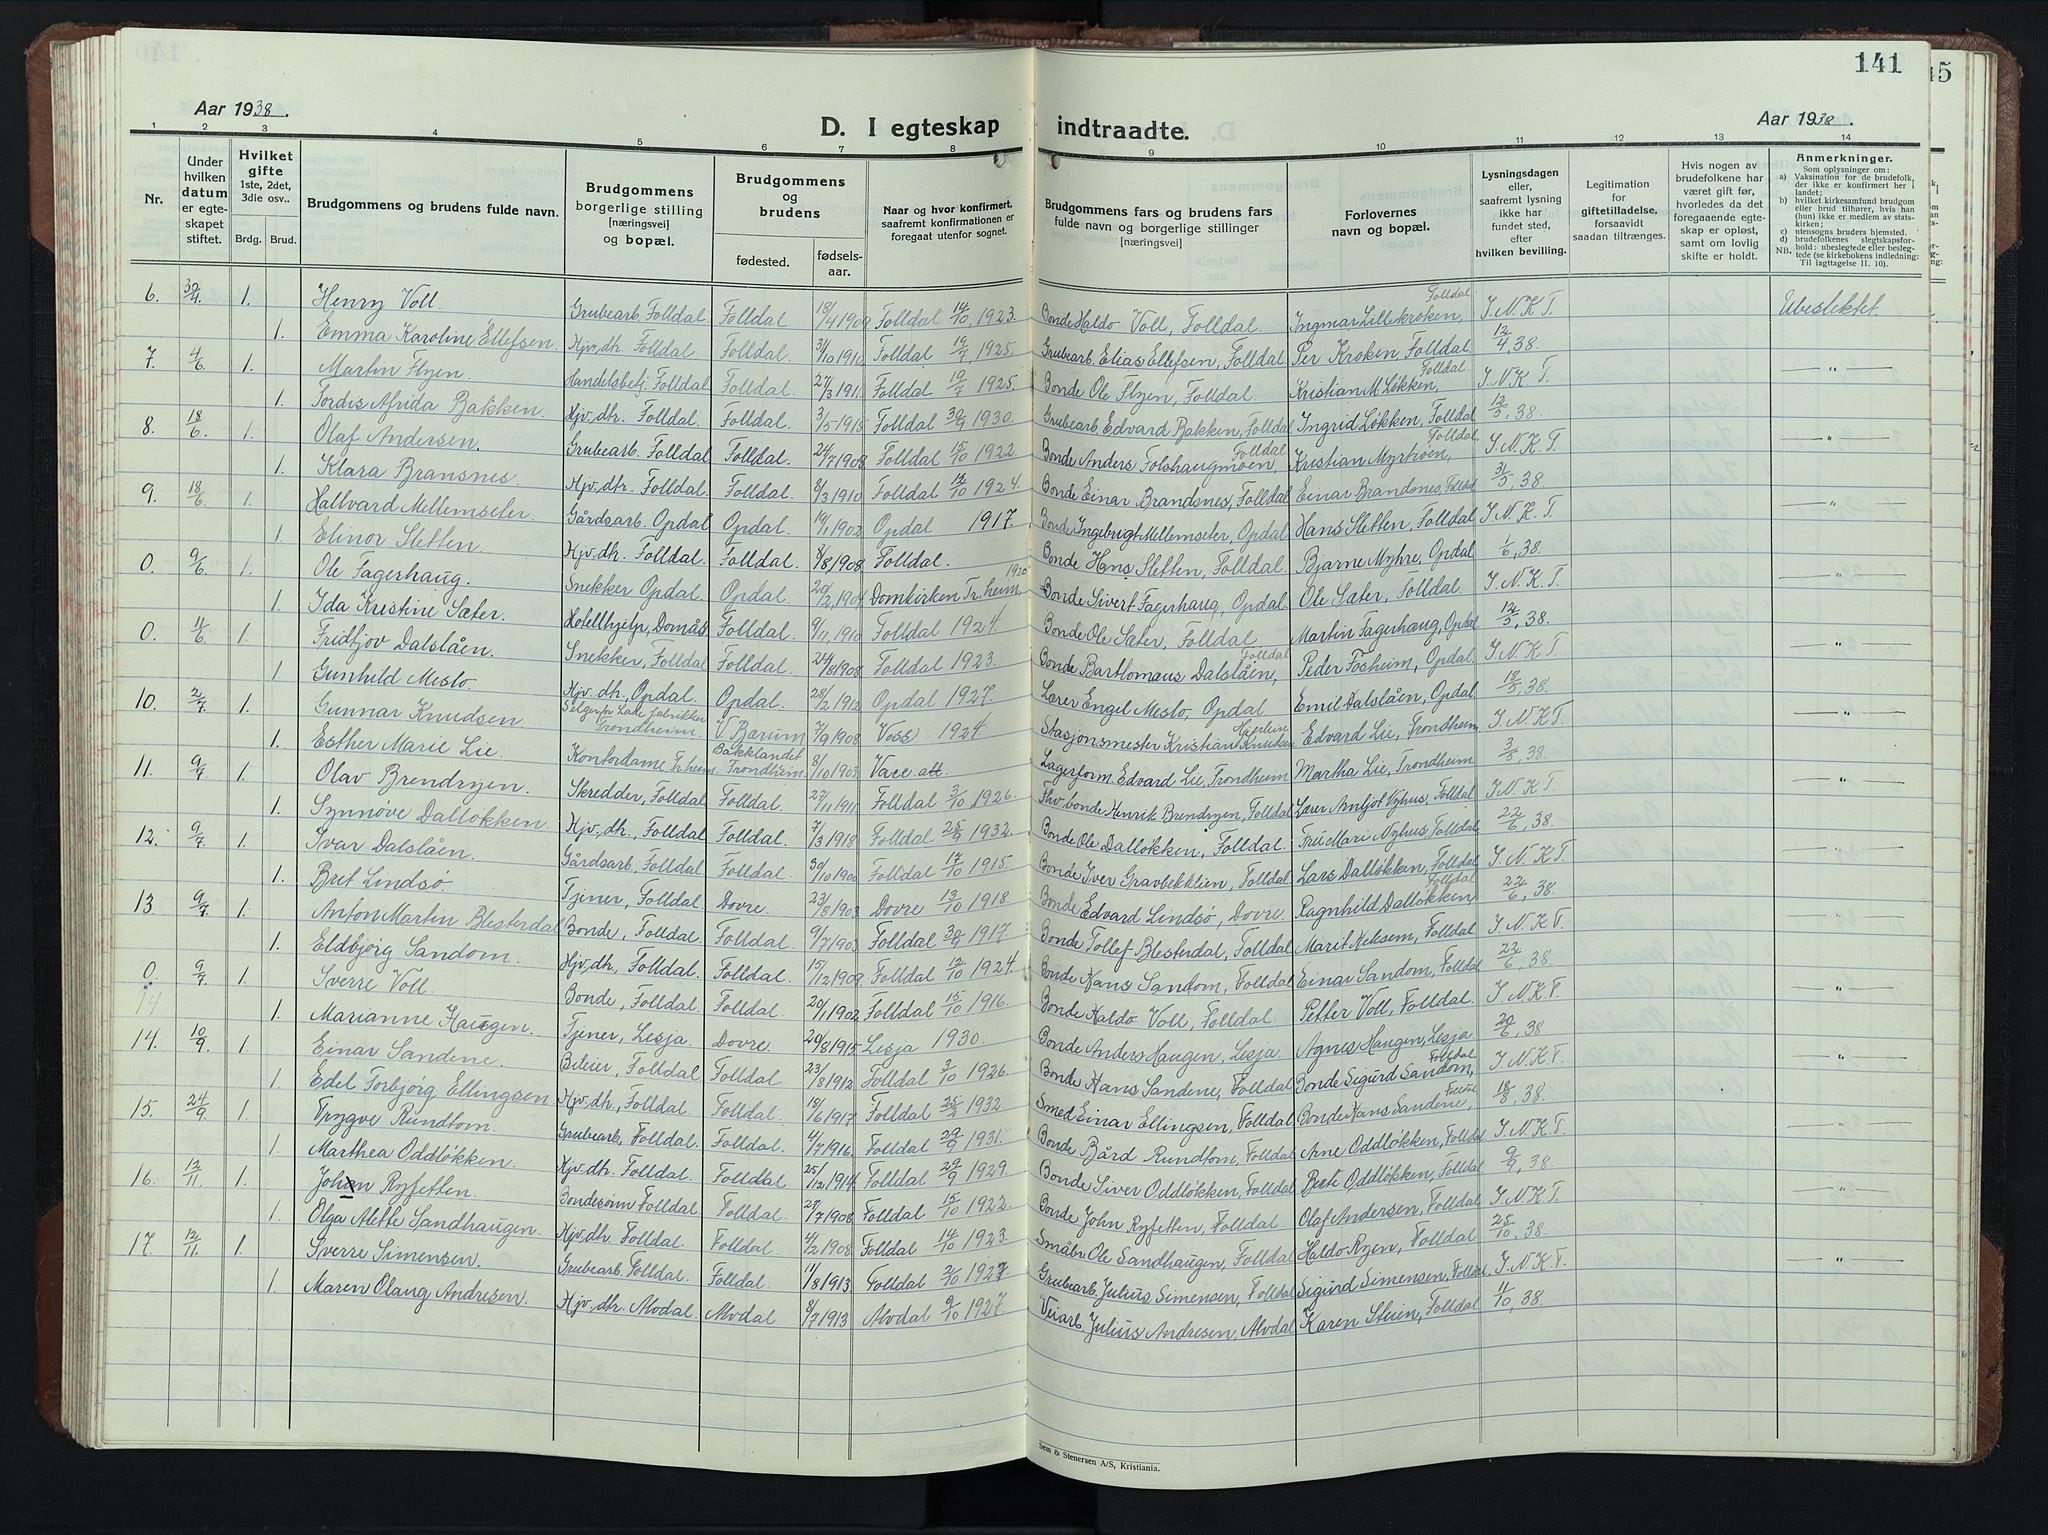 141
45
Aar 1938.
D. I egteskap indtraadte.
Aar 1938.
1 2 3 4 5 6 7 8 9 10 11 12 13 14
Nr.
Under hvilken datum er egteskapet stiftet.
Hvilket gifte 1ste, 2det, 3die osv..
Brdg. Brud.
Brudgommens og brudens fulde navn.
Brudgommens borgerlige stilling [næringsvei] og bopæl.
Brudgommens og brudens
fødested. fødselsaar.
Naar og hvor konfirmert, saafremt konfirmationen er foregaat utenfor sognet.
Brudgommens fars og brudens fars fulde navn og borgerlige stillinger [næringsvei]
Forlovernes navn og bopæl.
Lysningsdagen eller, saafremt lysning ikke har fundet sted, efter hvilken bevilling.
Legitimation for giftetilladelse, forsaavidt saadan tiltrænges.
Hvis nogen av brudefolkene har været gift før, hvorledes da det foregaaende egteskap er opløst, samt om lovlig skifte er holdt.
Anmerkninger.
Som oplysninger om:
a) Vaksination for de brudefolk, der ikke er konfirmert her i landet;
b) hvilket kirkesamfund brudgom eller brud tilhører, hvis han (hun) ikke er medlem av statskirken;
c) utensogns bruders hjemsted.
d) brudefolkenes slegtskapsforhold: ubeslegtede eller beslegtede (se kirkebokens indledning: Til iagttagelse II. 10).
NB.
6. 30/4. 1. Henry Voll Grubearb. Folldal Folldal 18/4 1909 Folldal 14/10 1923. Bonde Haldo Voll, Folldal. Ingmar Lillekroken, Folldal I.N.K.T. Ubeslektet.
1. Emma Karoline Ellefsen Hjv. dtr. Folldal Folldal. 31/10 1910 Folldal 19/7 1925. Grubearb. Elias Ellefsen, Folldal Per Kroken Folldal 12/4, 38.
7. 4/6 1. Martin Flyen Handelsbetj. Folldal Folldal 27/3 1911 Folldal 19/7 1925. Bonde Ole Flyen, Folldal Kristian M. Løkken, Folldal I.N.K.T. — " —
1. Tordis Afrida Bakken. Hjv. dtr. Folldal. Folldal. 3/5 1915 Folldal 30/9 1930. Grubearb. Edvard Bakken, Folldal Ingrid Løkken, Folldal 12/5, 38.
8. 18/6. 1. Olaf Andersen. Grubearb. Folldal Folldal. 24/7 1908 Folldal 15/10 1922 Bonde Anders Folshaugmoen, Folldal Kristian Myrtrøen, Folldal. I.N.K.T. — " —
1. Klara Bransnes. Hjv. dtr. Folldal. Folldal. 8/3 1910 Folldal 12/10 1924. Bonde Einar Brandsnes, Folldal Einar Brandsnes, Folldal 31/5, 38.
9. 18/6 1. Hallvard Mellemseter. Gårdsarb. Opdal Opdal. 19/1 1902 Opdal 1917. Bonde Ingebrigt Mellemseter, Opdal Hans Sletten, Folldal I.N.K.T. — " —
1. Elinor Sletten. Hjv. dtr. Folldal. Folldal. 8/8 1908 Folldal. Bonde Hans Sletten, Folldal. Bjarne Myhre, Opdal 1/6, 38.
0. 9/6 1. Ole Fagerhaug. Snekker Opdal Opdal. 20/2 1904 Domkirken Tr.heim 1920 Bonde Sivert Fagerhaug, Opdal Ole Sæter, Folldal. I.N.K.T. — " —
1. Ida Kristine Sæter. Hotellhjelp, Domås Folldal. 9/11 1910 Folldal 1924. Bonde Ole Sæter, Folldal Martin Fagerhaug, Opdal 12/5, 38.
0. 11/6 1. Fridtjov Dalslåen. Snekker, Folldal Folldal. 24/8 1908. Folldal 1923. Bonde Bartlomæus Dalslåen, Folldal Peder Fosheim, Opdal. I.N.K.T. — " —
1. Gunhild Meslo. Hjv. dtr., Opdal. Opdal. 28/2 1912 Opdal 1927. Lærer Engel Meslo, Opdal. Emil Dalslåen, Opdal 18/5, 38.
10. 2/7 1. Gunnar Knudsen Selger pr. Lade fabrikker Trondheim. V. Bærum 7/9 1908 Voss 1924 Stasjonsmester Kristian Knudsen Hjerkin Edvard Lie, Trondheim I.N.K.T. — " —
1. Esther Marie Lie Kontordame, Tr.heim Bakklandet Trondheim. 8/10 1903. Vacc. att. Lagerform. Edvard Lie, Trondheim Martha Lie, Trondheim 3/5, 38.
11. 9/7 1. Olav Brendryen. Skredder, Folldal Folldal. 27/11 1911 Folldal 3/10 1926. Thv. bonde Henrik Brendryen, Folldal Lærer Arnljot Nyhus, Folldal I.N.K.T. — " —
1. Synnøve Dalløkken. Hjv, dtr., Folldal. Folldal. 7/3 1918 Folldal 25/9 1932. Bonde Ole Dalløkken, Folldal. Fru Mari Nyhus, Folldal 22/6, 38.
12. 9/7 1. Ivar Dalslåen. Gårdsarb. Folldal Folldal 30/10 1900 Folldal 17/10 1915 Bonde Iver Gravbekklien, Folldal Lars Dalløkken, Folldal I.N.K.T. — " —
1. Brit Lindsø Tjener, Folldal Dovre. 23/8 1903 Dovre 13/10 1918. Bonde Edvard Lindsø, Dovre. Ragnhild Dalløkken, Folldal 22/6, 38.
13. 9/7 1. Anton Martin Blesterdal Bonde, Folldal. Folldal. 9/7 1903 Folldal 30/9 1917 Bonde Tollef Blesterdal, Folldal Marit Keksem, Folldal I.N.K.T. — " —
1. Eldbjørg Sandom. Hjv, dtr., Folldal. Folldal. 15/12 1909 Folldal 12/10 1924. Bonde Hans Sandom, Folldal Einar Sandom, Folldal 22/6, 38.
0. 9/7. 1. Sverre Voll. Bonde, Folldal Folldal. 20/1 1902 Folldal 15/10 1916. Bonde Haldo Voll, Folldal Petter Voll, Folldal. I.N.K.T. — " —
14
1. Marianne Haugen. Tjener, Lesja Dovre. 20/8 1915 Lesja 1930. Bonde Anders Haugen, Lesja. Agnes Haugen, Lesja 20/6, 38.
14. 10/9. 1. Einar Sandene. Bileier, Folldal Folldal. 23/8 1912 Folldal 3/10 1926. Bonde Hans Sandene, Folldal Bonde Sigurd Sandom, Folldal I.N.K.T. — " —
1. Edel Torbjørg Ellingsen Hjv, dtr., Folldal. Folldal. 18/6 1917 Folldal 25/9 1932 Smed Einar Ellingsen, Folldal Bonde Hans Sandene, Folldal 18/8, 38.
15. 24/9 1. Trygve Rundtom. Grubearb. Folldal. Folldal 4/7 1916. Folldal 29/9 1931. Bonde Bård Rundtom, Folldal Arne Oddløkken, Folldal I.N.K.T. — " —
1. Marthea Oddløkken. Hjv. dtr. Folldal. Folldal 25/12 1914 Folldal 29/9 1929. Bonde Siver Oddløkken, Folldal Berit Oddløkken, Folldal 9/9, 38.
16. 12/11 1. Johan Ryfetten. Bondesønn Folldal Folldal. 23/7 1908 Folldal 15/10 1922. Bonde John Ryfetten, Folldal. Olaf Andersen, Folldal I.N.K.T. — " —
1. Olga Alette Sandhaugen. Hjv. dtr. Folldal. Folldal. 4/2 1908 Folldal 14/10 1923. Småbr. Ole Sandhaugen, Folldal Haldo Ryen, Folldal 25/10, 38.
17. 12/11. 1. Sverre Simensen. Grubearb. Folldal. Folldal 11/8 1913. Folldal 2/10 1927 Grubearb. Julius Simensen, Folldal Sigurd Simensen, Folldal. I.N.K.T. — " —
1. Maren Olaug Andresen. Hjv. dtr. Alvdal. Alvdal 8/7 1913 Alvdal 9/10 1927 Veiarb. Julius Andresen, Alvdal Karen Steien, Folldal 11/10, 38.
Sem & Stenersen A/S, Kristiania.